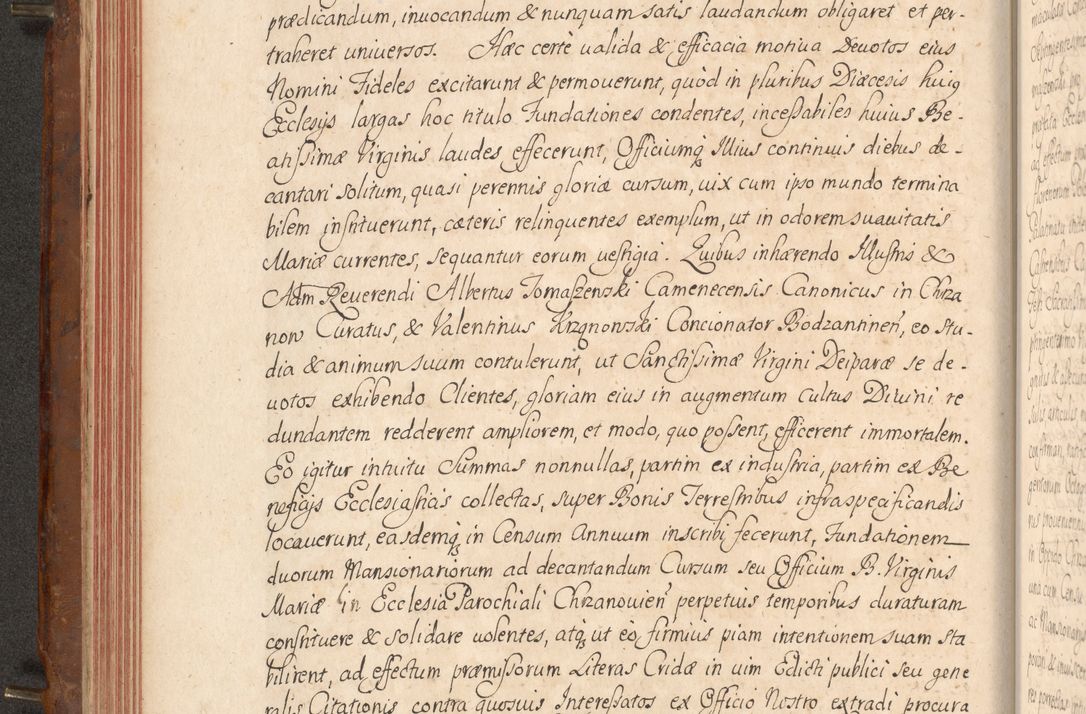 prædicandum, inuocandum & nunquam satis laudandum obligaret et per-
traheret universos. Hæc certè ualida & efficacia motiua Deuotos eius
Nomini Fideles excitarunt & permouerunt, quòd in pluribus Diæcesis huiꝯ
Ecclesijs largas hoc titulo Fundationes condentes, incessabiles huius Be-
atissimæ Virginis laudes effecerunt, Officiumq; Illius continuis diebus de-
cantari solitum, quasi perennis gloriæ cursum, uix cum ipso mundo termina
bilem instituerunt, cæteris relinquentes exemplum, ut in odorem suauitatis
Mariæ currentes, sequantur eorum uestigia. Quibus inhærendo Illustris &
Adm Reuerendi Albertus Tomaszenski Camenecensis Canonicus in Chrza
now Curatus, & Valentinus Krzynonski Concionator Bodzantineñ, eo stu-
dia & animum suum contulerunt, ut Sanctissimæ Virgini Deiparæ se de-
uotos exhibendo Clientes, gloriam eius in augmentum Cultus Diuini re
dundantem redderent ampliorem, et modo, quo possent, efficerent immortalem.
Eo igitur intuitu Summas nonnullas, partim ex industria, partim ex Be
neficijs Ecclesiasticis collectas, super Bonis Terrestribus infraspecificandis
locauerunt, easdemq; in Censum Annuum inscribi fecerunt, Fundationem
duorum Mansionariorum ad decantandum Cursum seu Officium B. Virginis
Mariæ in Ecclesia Parochiali Chrzanouieñ perpetuis temporibus duraturam
constituere & solidare uolentes, atq; ut eò firmius piam intentionem suam sta
bilirent, ad effectum præmissorum Literas Cridæ in uim Edicti publici seu gene
ralis Citationis contra quosuis Interessatos ex Officio Nostro extradi procura